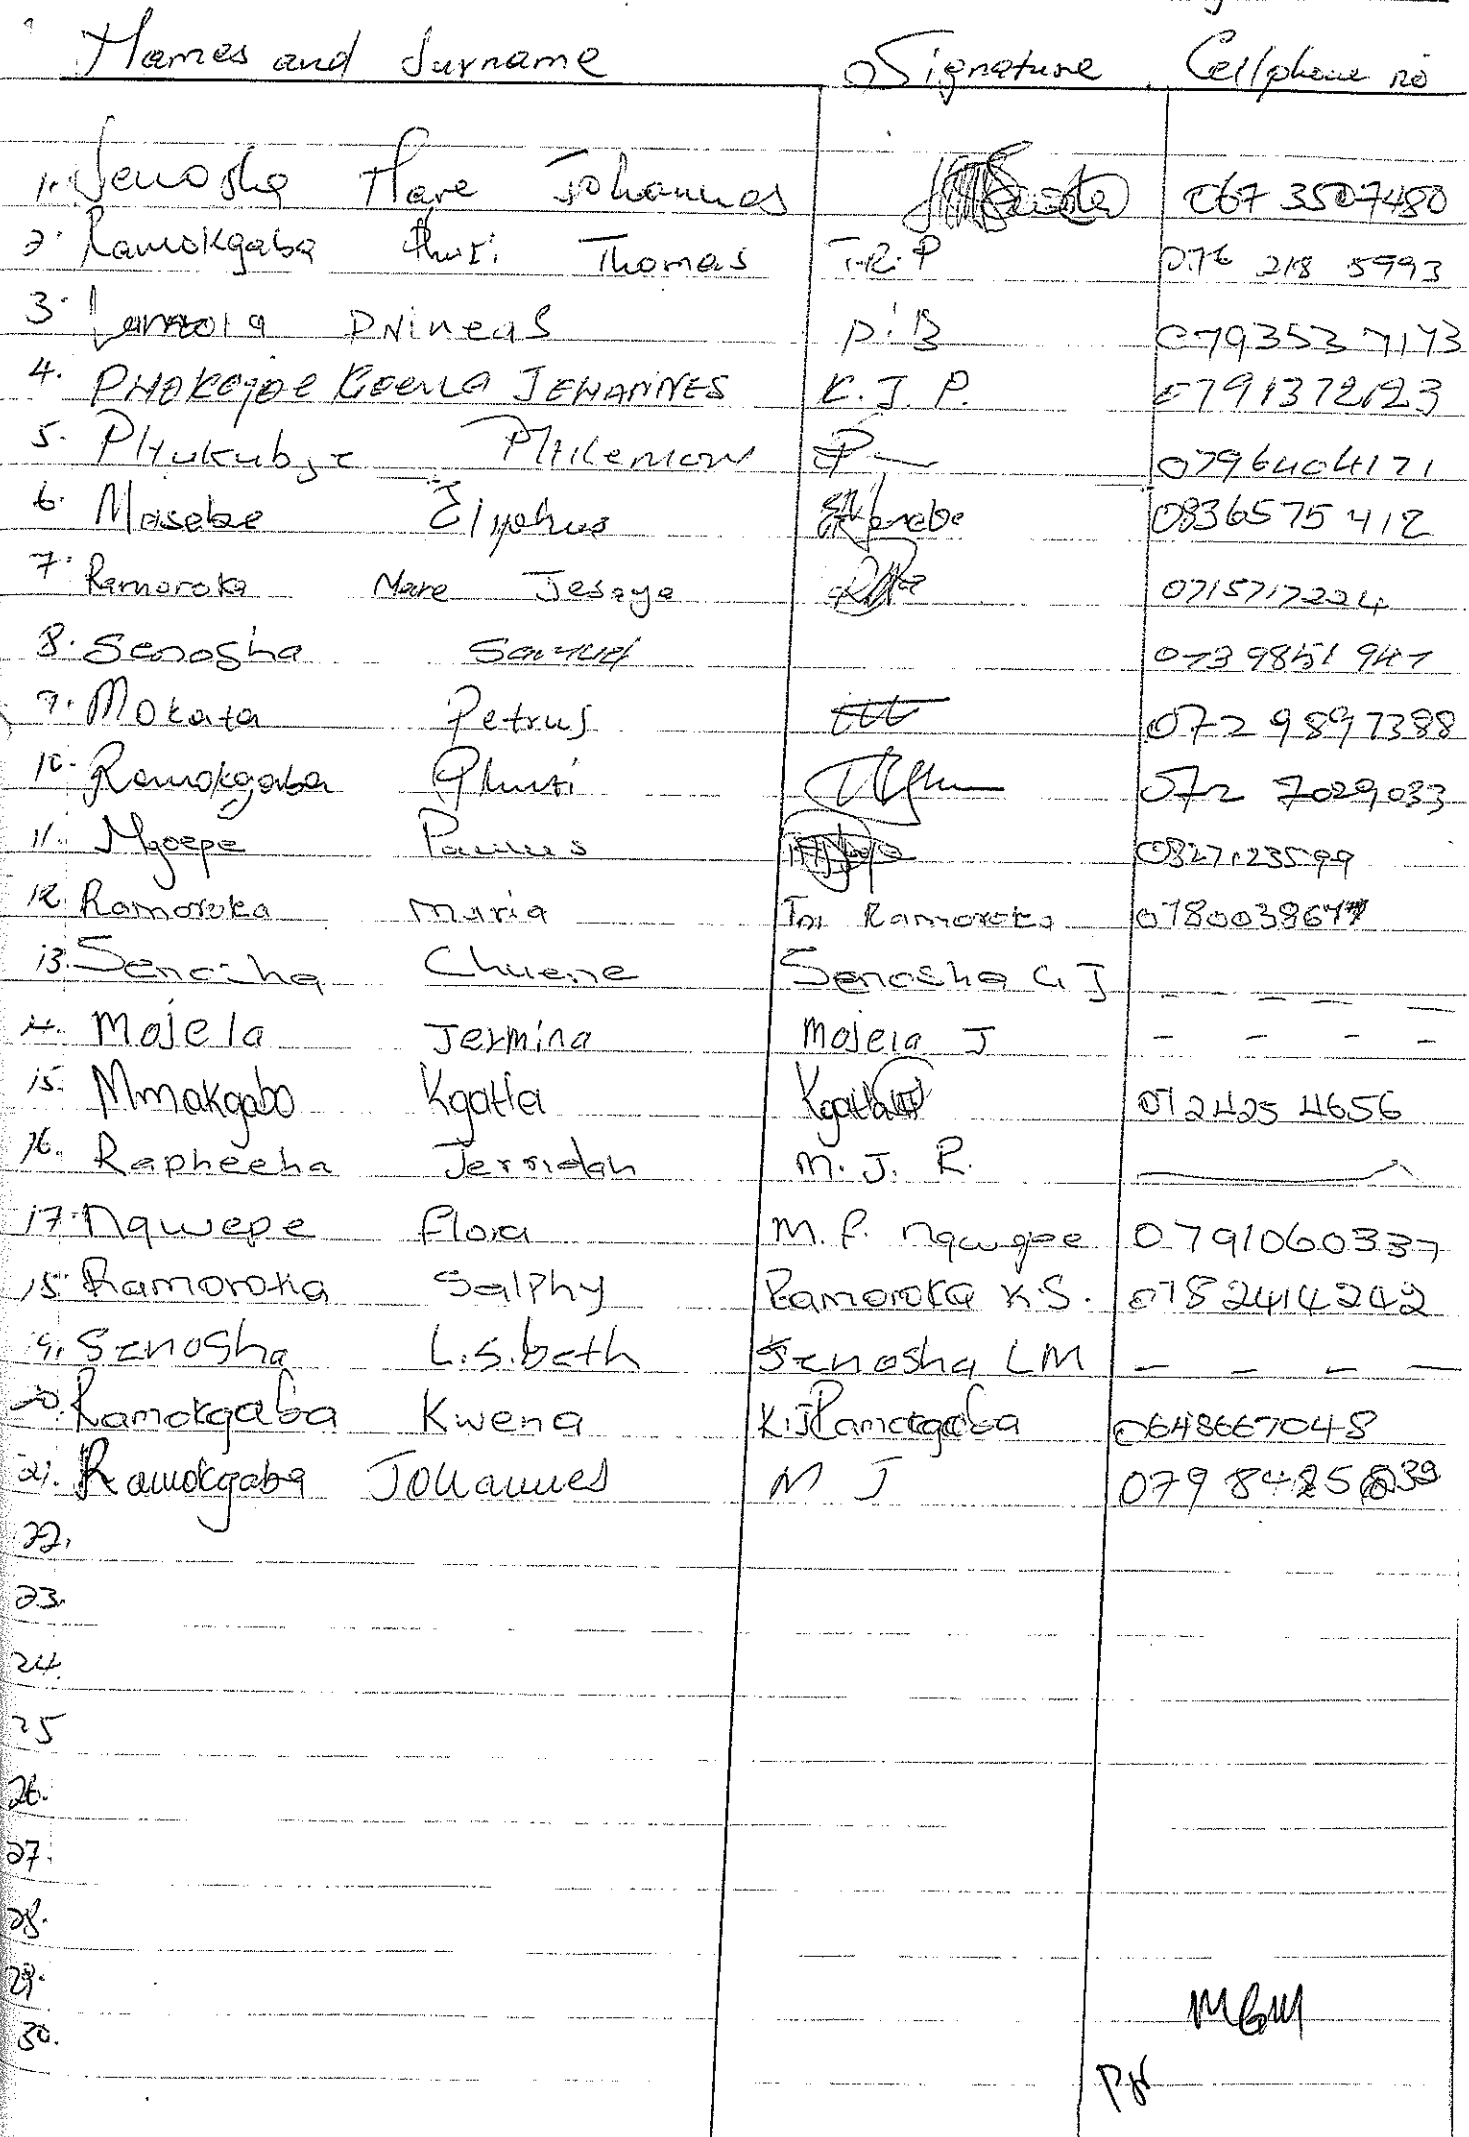 Names and Surname Signature Cellphone no
1. Senosha Mare Johannes 067 3507480
2. Ramokgaba Phuti Thomas T.R.P 076 218 5993
3. Phineas P.B 0793537173
4. K.J.P. 0791372123
5. Philemon 0796404171
6. Masebe 0836575412
7. Ramoroka Mare Jesaya 0715717224
8. Senosha Samuel 0739851947
9. Mokata Petrus 072 9897388
10. Ramokgaba Phuti 072 7029033
11. Mgoepe Paulus 0827123599
12. Ramoroka Maria Ramoroka
13. Senosha Chuene Senosha C J - - - -
14. Mojela Jermina Mojela J - - - -
15. Mmakgabo Kgatla Kgatla 072425 4656
16. Rapheeha Jersidah M. J. R.
17. Nqwepe Flora M. F. 0791060337
18. Ramoroka Salphy Ramoroka K.S. 0782414242
19. Senosha L.S.beth Senosha LM - - - -
20. Ramokgaba Kwena K.J Ramokgaba 0648667048
21. Ramokgaba Johannes M J 079 8425
22.
23.
24.
25
26.
27.
28.
29.
30.
MGM